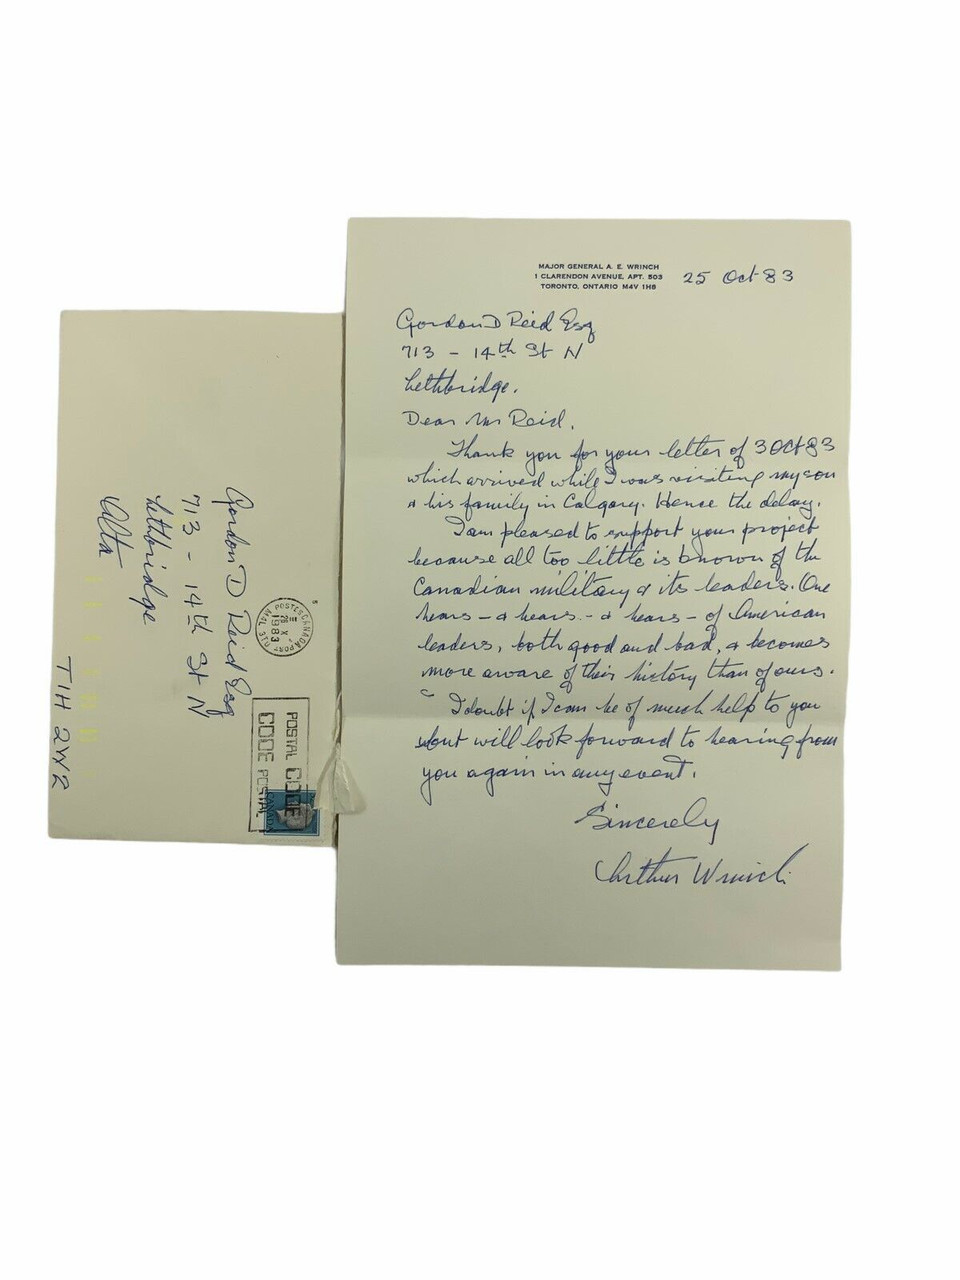 MAJOR GENERAL A. E. WRINCH
1 CLARENDON AVENUE, APT. 503
TORONTO, ONTARIO M4V 1H8
25 Oct 83
Gordon D Reid Esq
713 - 14th St N
Lethbridge.
Dear Mr Reid.
Thank you for your letter of 3 Oct 83
which arrived while I was visiting my son
& his family in Calgary. Hence the delay.
I am pleased to support your project
because all too little is known of the
Canadian military & its leaders. One
hears - & hears - & hears - of American
leaders, both good and bad, & becomes
more aware of their history than of ours.
I doubt if I can be of much help to you
but will look forward to hearing from
you again in any event.
Sincerely
Arthur Wrinch
Gordon D Reid Esq
713 - 14th St N
Lethbridge
Alta
T1H 2W2
POSTES CANADA POST
1983
POSTAL CODE
CODE POSTAL
CANADA